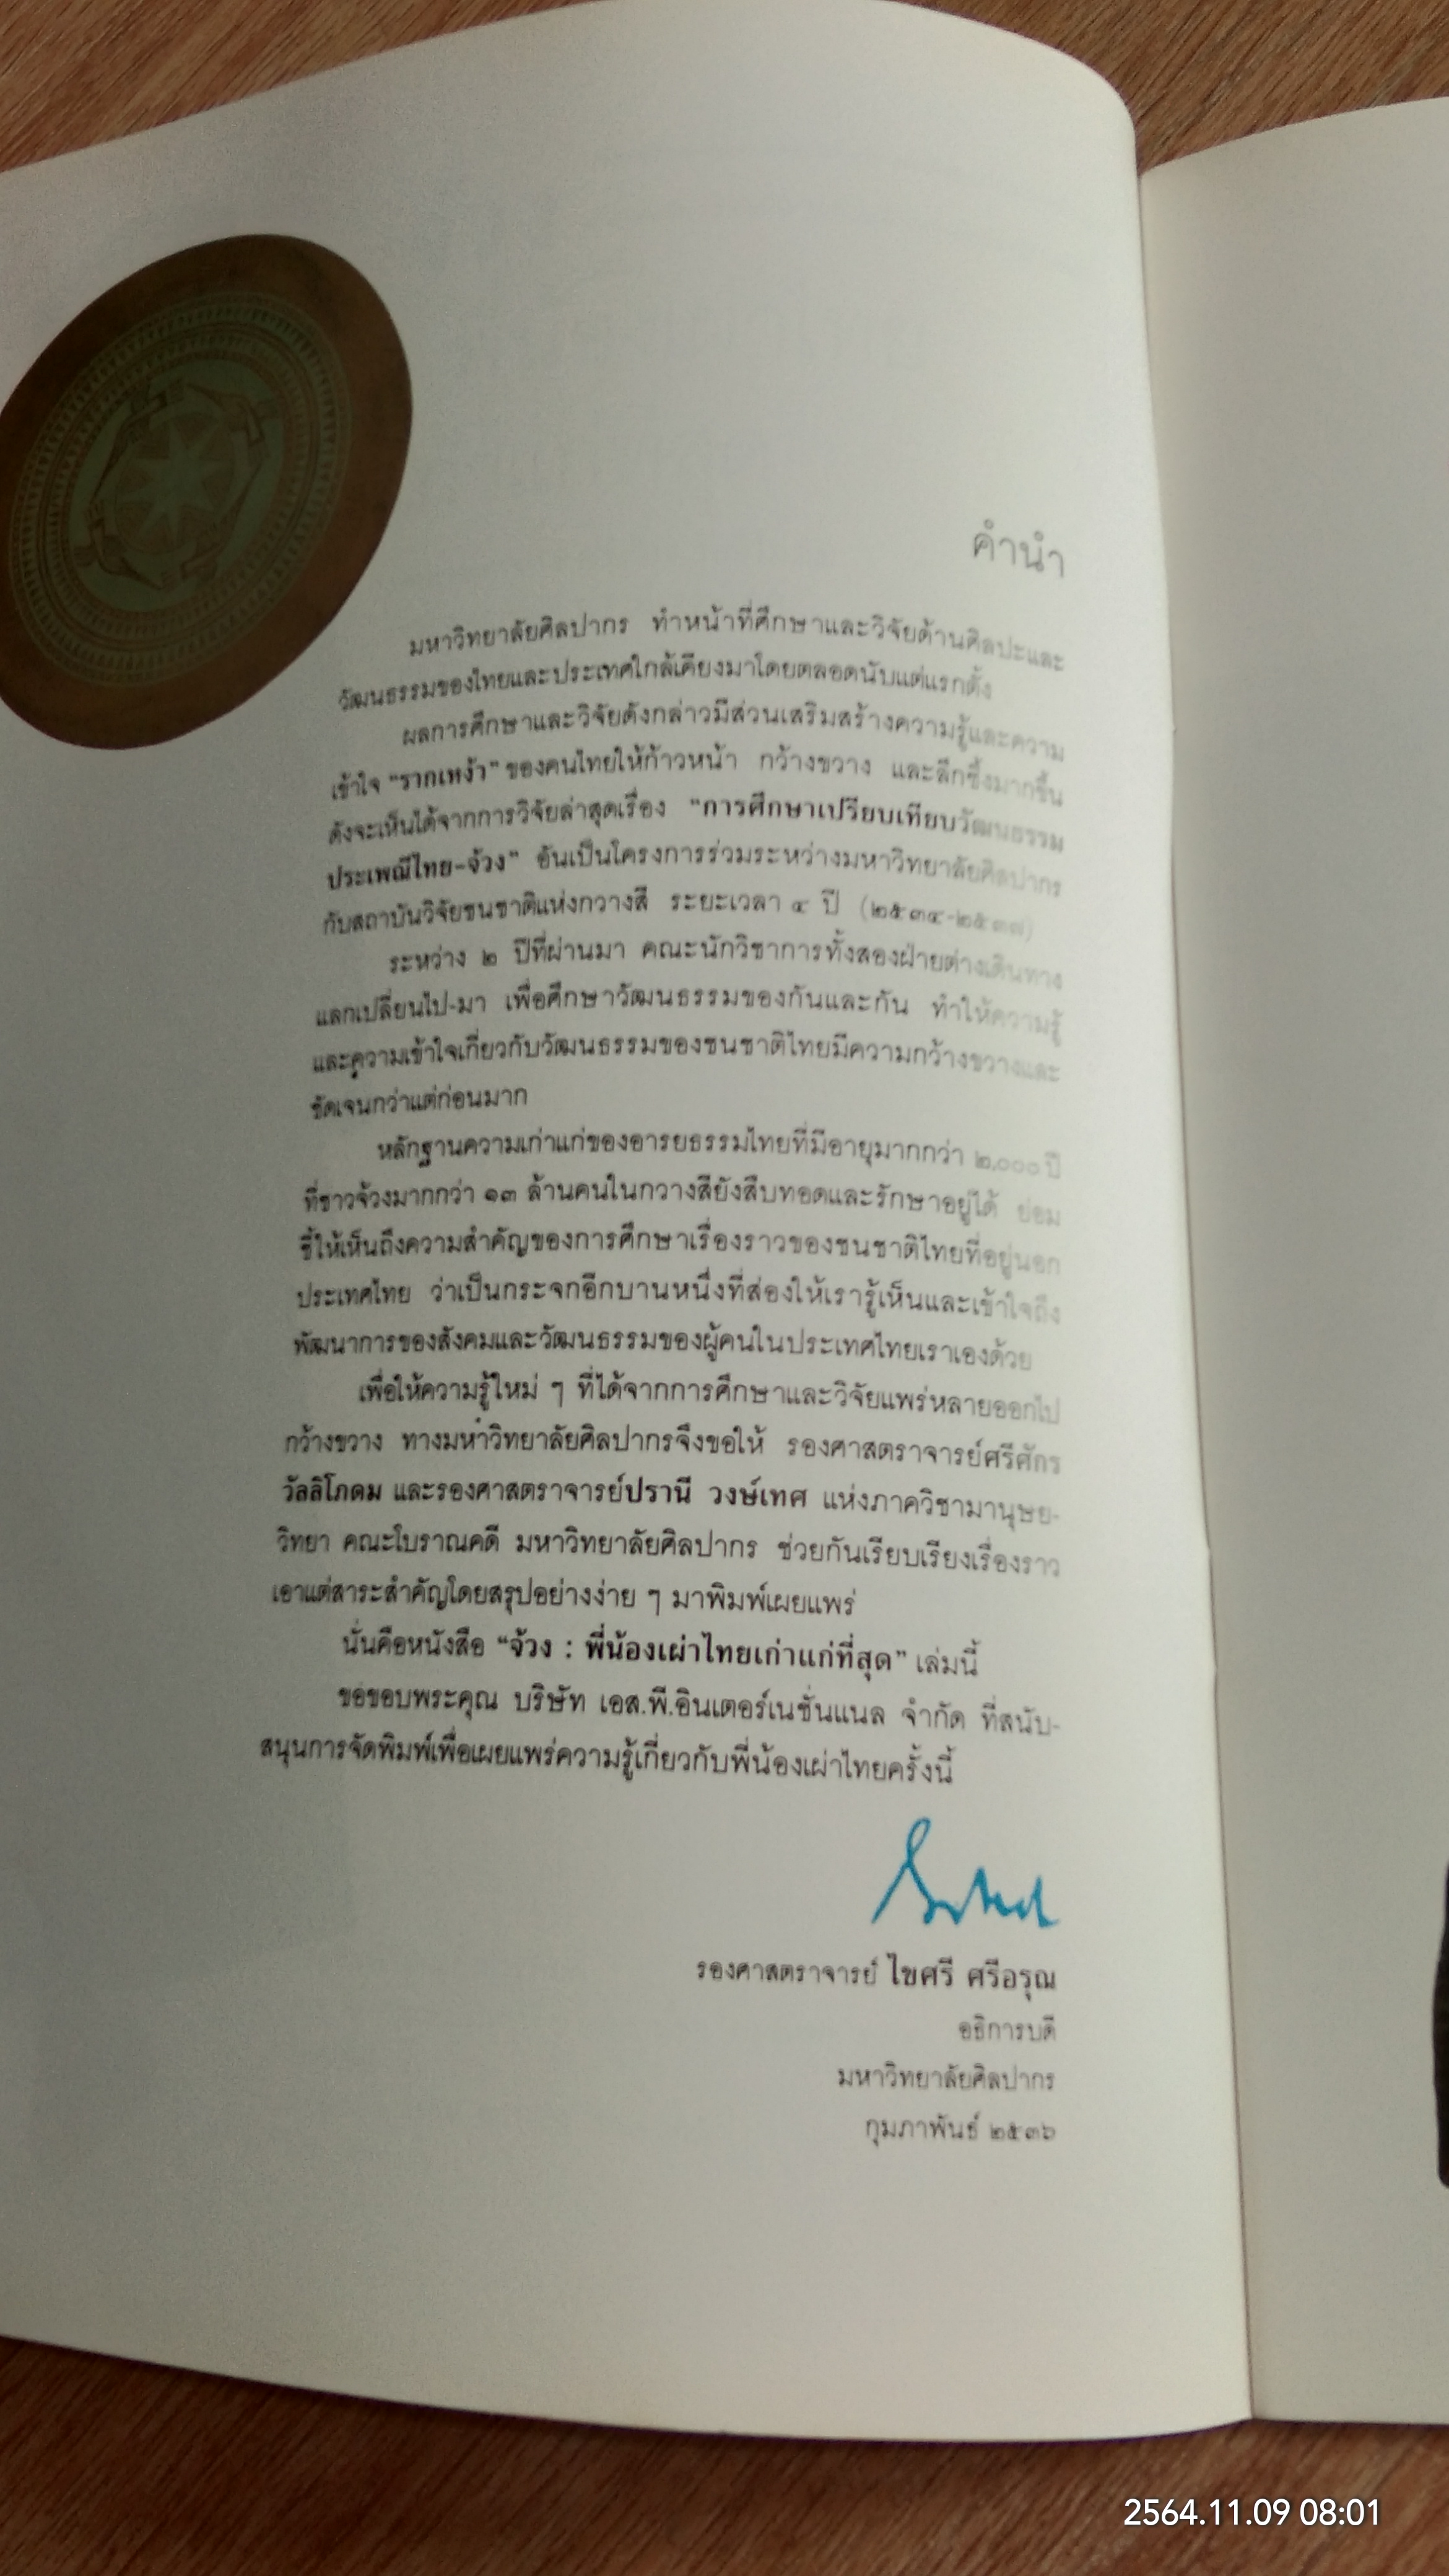 คำนำ
มหาวิทยาลัยศิลปากร ทำหน้าที่ศึกษาและวิจัยด้านศิลปะและ
วัฒนธรรมของไทยและประเทศใกล้เคียงมาโดยตลอดนับแต่แรกตั้ง
ผลการศึกษาและวิจัยดังกล่าวมีส่วนเสริมสร้างความรู้และความ
เข้าใจ "รากเหง้า" ของคนไทยให้ก้าวหน้า กว้างขวาง และลึกซึ้งมากขึ้น
ดังจะเห็นได้จากการวิจัยล่าสุดเรื่อง "การศึกษาเปรียบเทียบวัฒนธรรม
ประเพณีไทย-จ้วง" อันเป็นโครงการร่วมระหว่างมหาวิทยาลัยศิลปากร
กับสถาบันวิจัยชนชาติแห่งกวางสี ระยะเวลา ๔ ปี (๒๕๓๔-๒๕๓๗)
ระหว่าง ๒ ปีที่ผ่านมา คณะนักวิชาการทั้งสองฝ่ายต่างเดินทาง
แลกเปลี่ยนไป-มา เพื่อศึกษาวัฒนธรรมของกันและกัน ทำให้ความรู้
และความเข้าใจเกี่ยวกับวัฒนธรรมของชนชาติไทยมีความกว้างขวางและ
ชัดเจนกว่าแต่ก่อนมาก
หลักฐานความเก่าแก่ของอารยธรรมไทยที่มีอายุมากกว่า ๒,๐๐๐ ปี
ที่ชาวจ้วงมากกว่า ๑๓ ล้านคนในกวางสียังสืบทอดและรักษาอยู่ได้ ย่อม
ชี้ให้เห็นถึงความสำคัญของการศึกษาเรื่องราวของชนชาติไทยที่อยู่นอก
ประเทศไทย ว่าเป็นกระจกอีกบานหนึ่งที่ส่องให้เรารู้เห็นและเข้าใจถึง
พัฒนาการของสังคมและวัฒนธรรมของผู้คนในประเทศไทยเราเองด้วย
เพื่อให้ความรู้ใหม่ ๆ ที่ได้จากการศึกษาและวิจัยแพร่หลายออกไป
กว้างขวาง ทางมหาวิทยาลัยศิลปากรจึงขอให้ รองศาสตราจารย์ศรีศักร
วัลลิโภดม และรองศาสตราจารย์ปรานี วงษ์เทศ แห่งภาควิชามานุษย-
วิทยา คณะโบราณคดี มหาวิทยาลัยศิลปากร ช่วยกันเรียบเรียงเรื่องราว
เอาแต่สาระสำคัญโดยสรุปอย่างง่าย ๆ มาพิมพ์เผยแพร่
นั่นคือหนังสือ "จ้วง : พี่น้องเผ่าไทยเก่าแก่ที่สุด" เล่มนี้
ขอขอบพระคุณ บริษัท เอส.พี.อินเตอร์เนชั่นแนล จำกัด ที่สนับ-
สนุนการจัดพิมพ์เพื่อเผยแพร่ความรู้เกี่ยวกับพี่น้องเผ่าไทยครั้งนี้
รองศาสตราจารย์ ไขศรี ศรีอรุณ
อธิการบดี
มหาวิทยาลัยศิลปากร
กุมภาพันธ์ ๒๕๓๖
2564.11.09 08:01